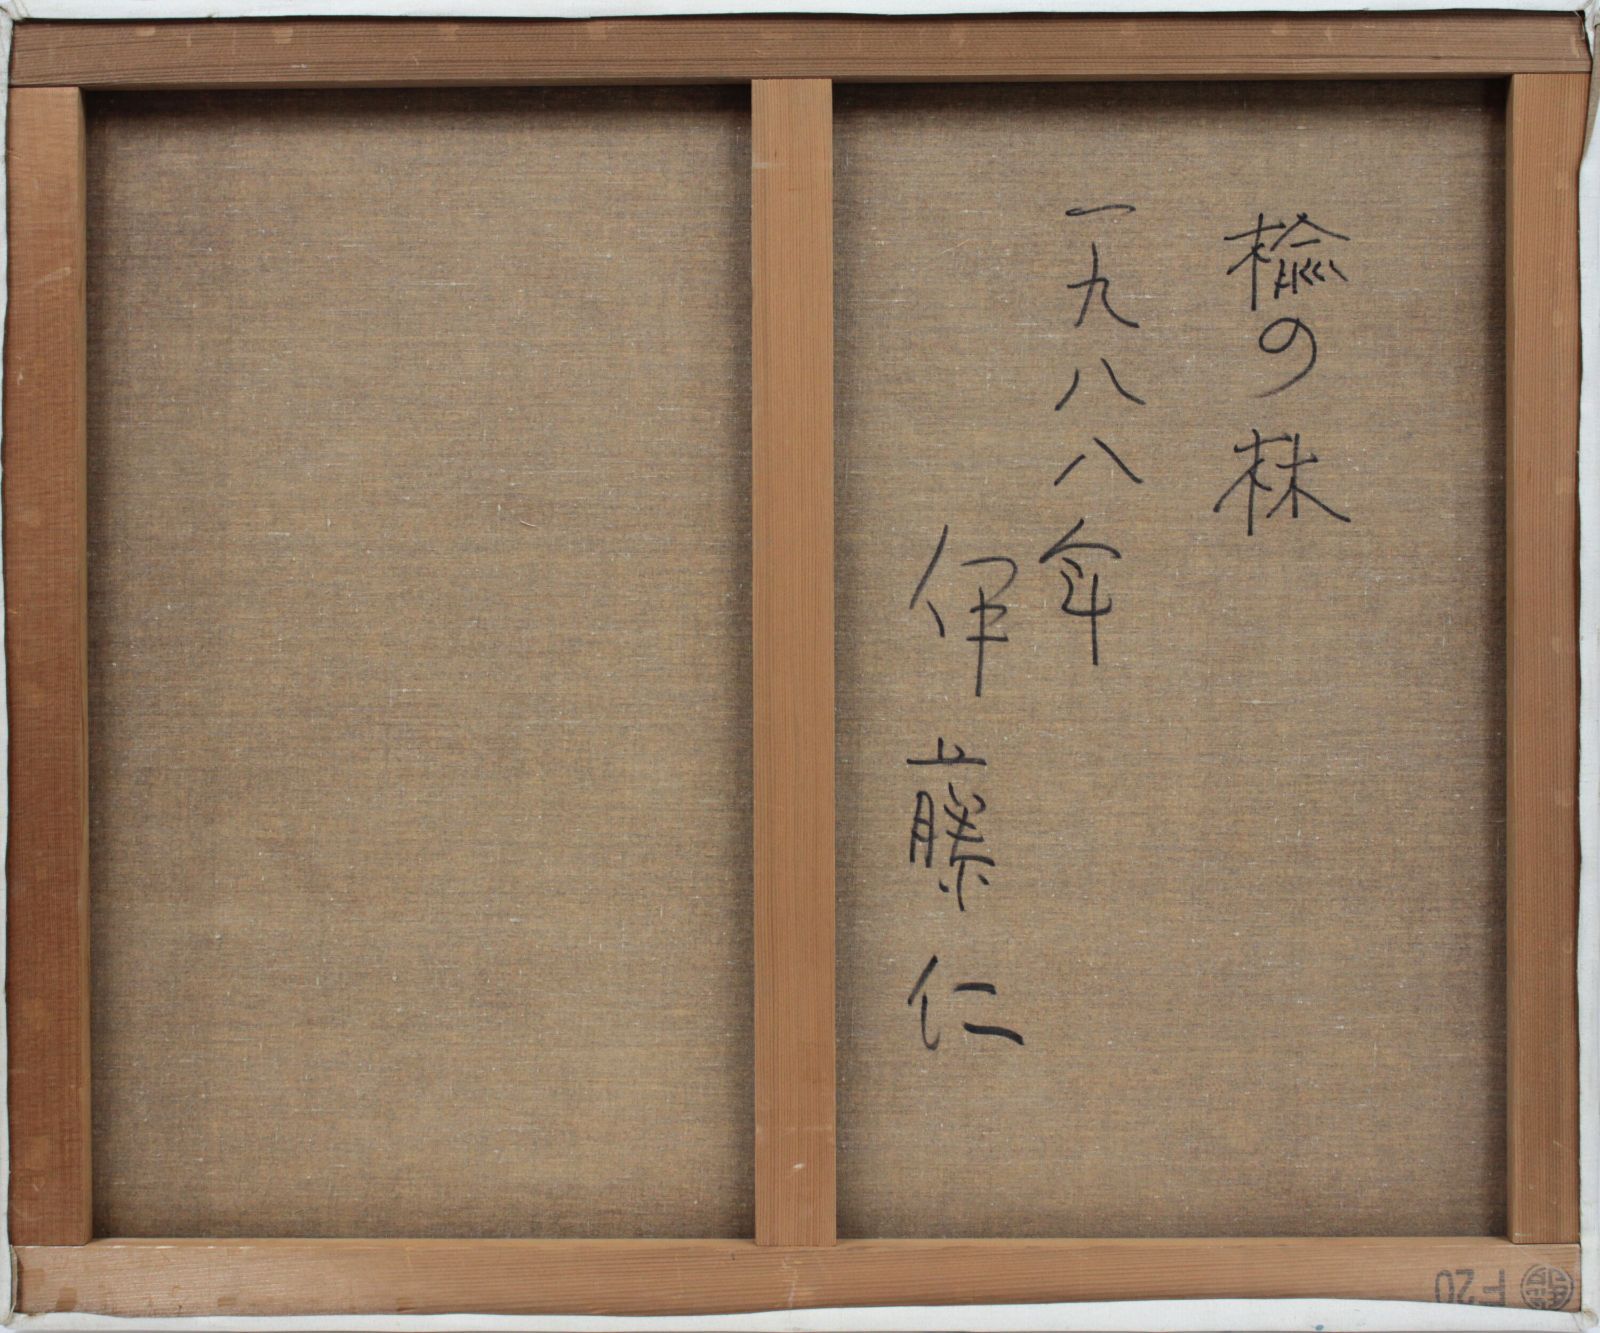 楡の林
一九八八年
伊藤仁
F20